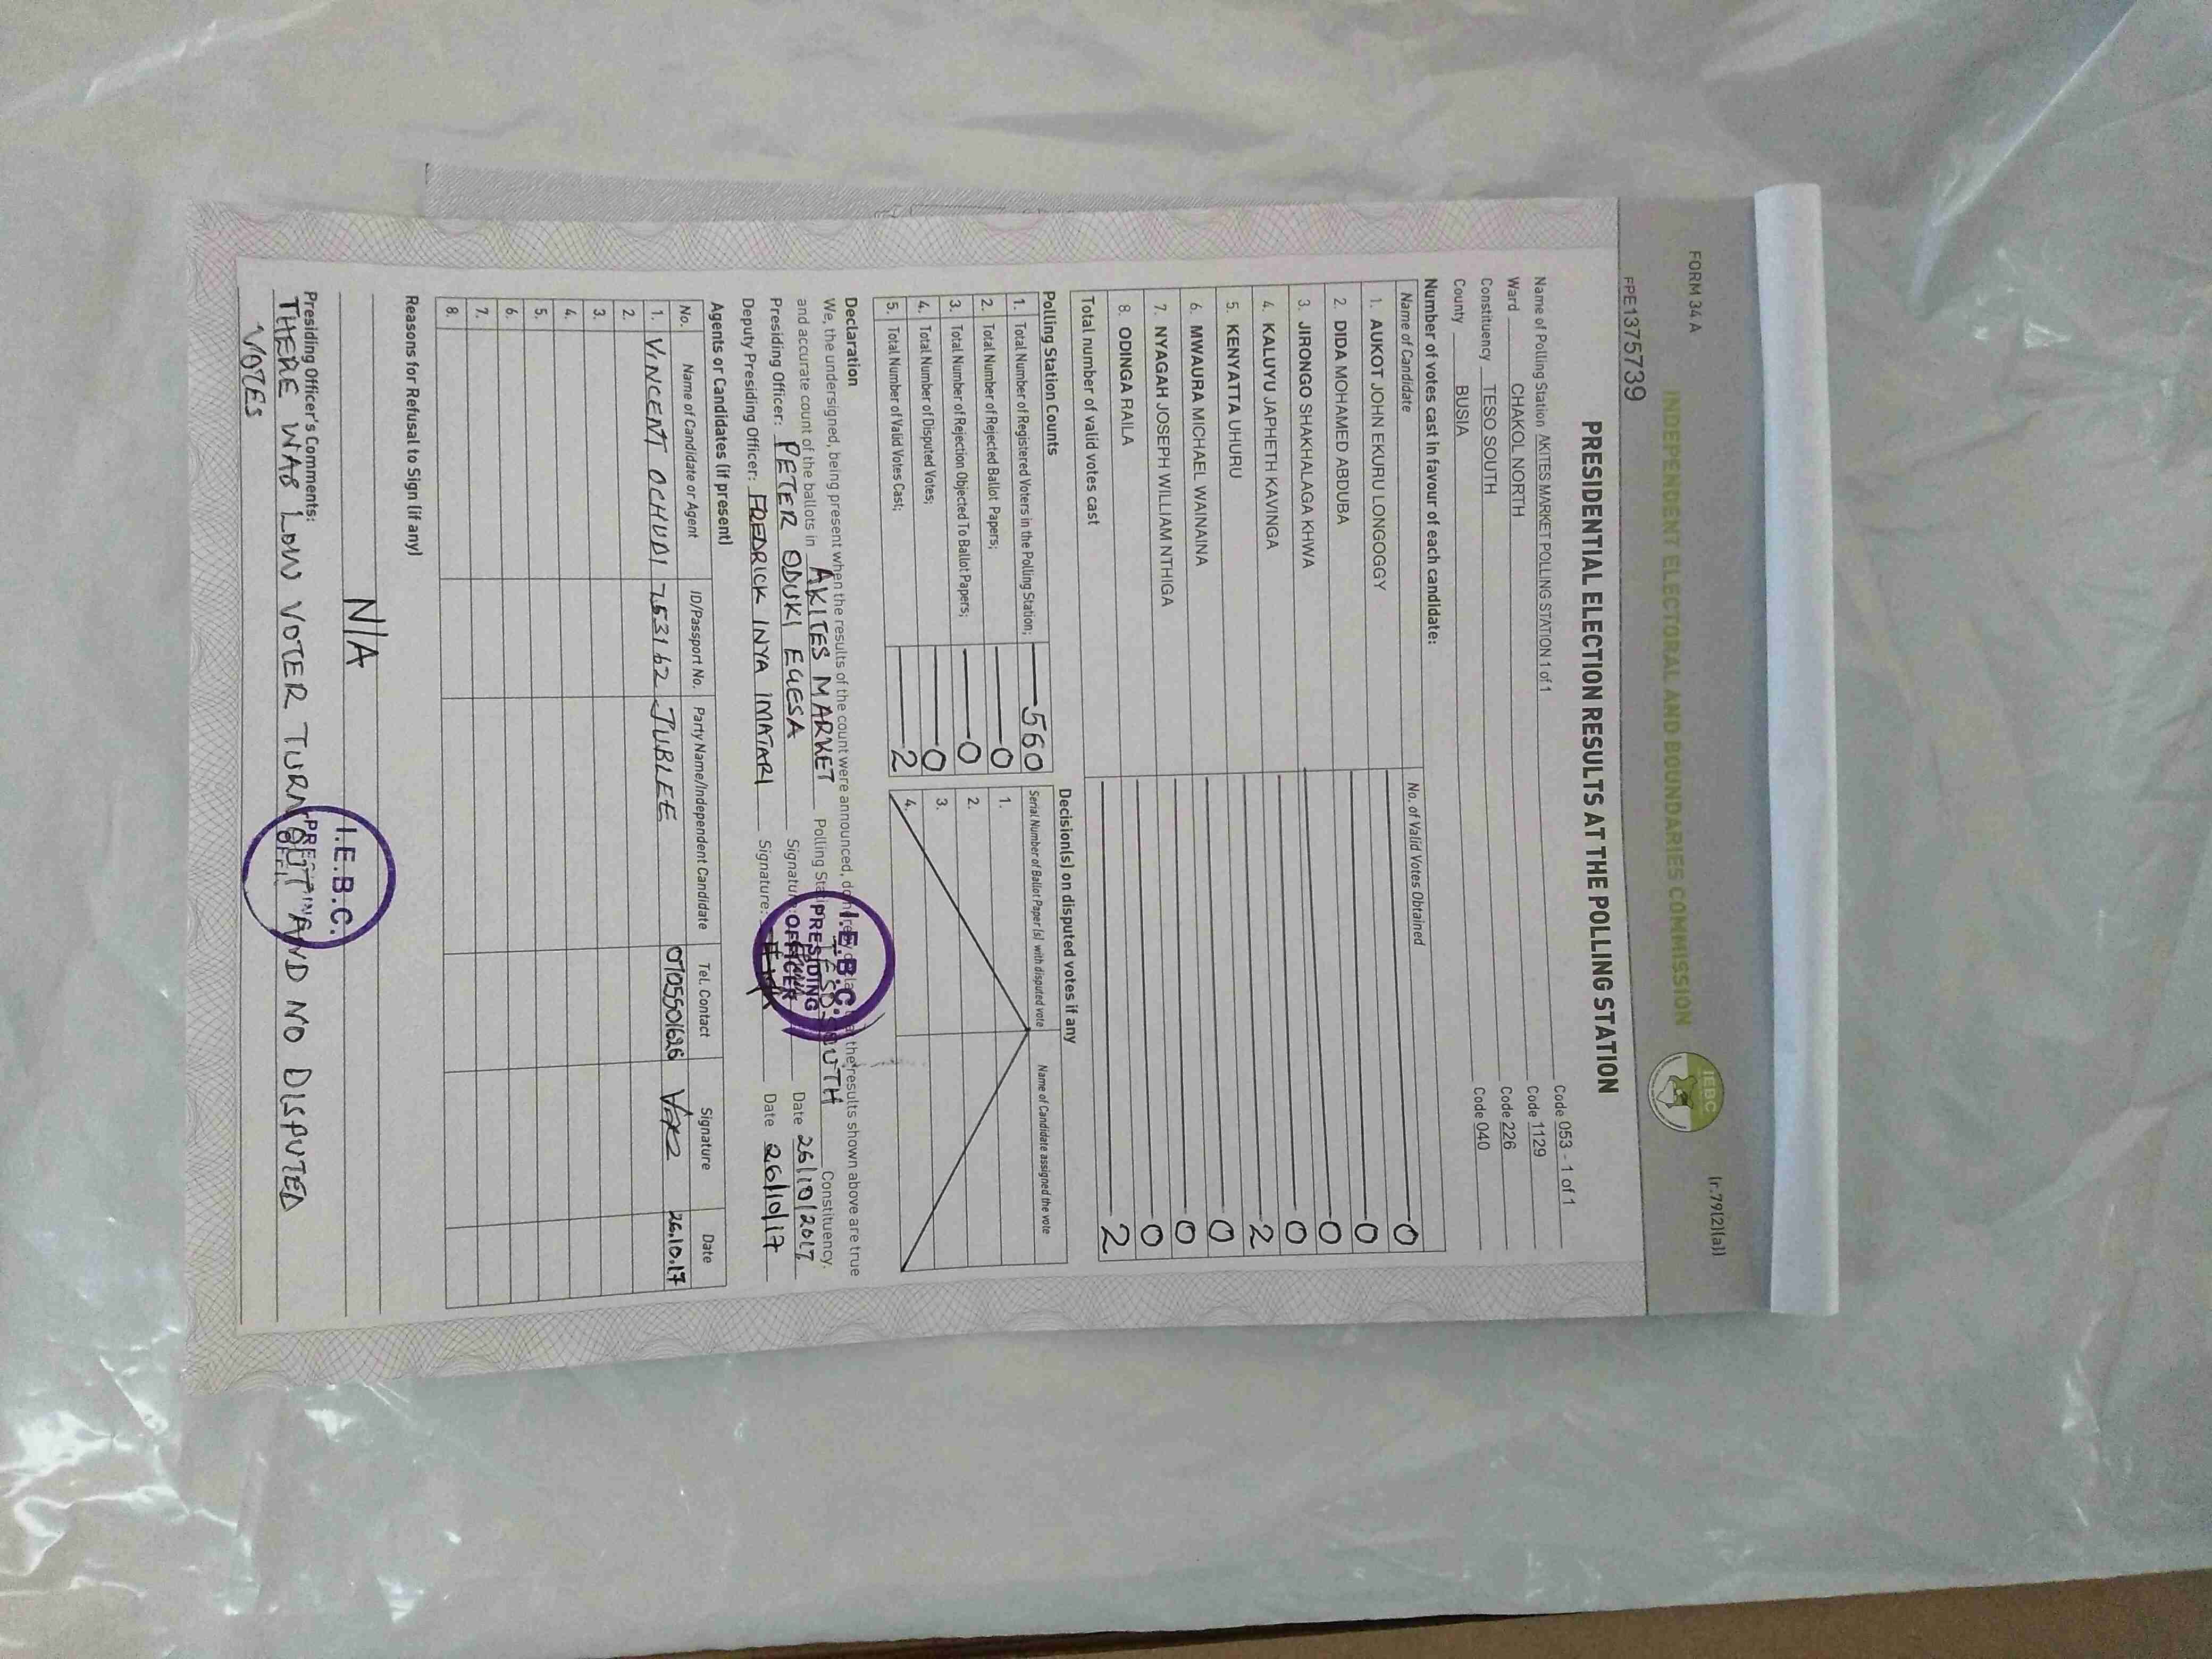 FORM 34 A
(r.79(2)(a))
INDEPENDENT ELECTORAL AND BOUNDARIES COMMISSION
IEBC
PPE1375739
PRESIDENTIAL ELECTION RESULTS AT THE POLLING STATION
Name of Polling Station AKITES MARKET POLLING STATION 1 of 1 Code 053 - 1 of 1
Ward CHAKOL NORTH Code 1129
Constituency TESO SOUTH Code 226
County BUSIA Code 040
Number of votes cast in favour of each candidate:
Name of Candidate No. of Valid Votes Obtained
1. AUKOT JOHN EKURU LONGOGGY 0
2. DIDA MOHAMED ABDUBA 0
3. JIRONGO SHAKHALAGA KHWA 0
4. KALUYU JAPHETH KAVINGA 0
5. KENYATTA UHURU 2
6. MWAURA MICHAEL WAINAINA 0
7. NYAGAH JOSEPH WILLIAM NTHIGA 0
8. ODINGA RAILA 0
Total number of valid votes cast 2
Polling Station Counts
1. Total Number of Registered Voters in the Polling Station; 560
2. Total Number of Rejected Ballot Papers; 0
3. Total Number of Rejection Objected To Ballot Papers; 0
4. Total Number of Disputed Votes; 0
5. Total Number of Valid Votes Cast; 2
Decision(s) on disputed votes if any
Serial Number of Ballot Paper (s) with disputed vote Name of Candidate assigned the vote
1.
2.
3.
4.
Declaration
We, the undersigned, being present when the results of the count were announced, do hereby declare that the results shown above are true
and accurate count of the ballots in AKITES MARKET Polling Station TESO SOUTH Constituency.
Presiding Officer: PETER ODUKI EGESA Signature: Date 26/10/2017
Deputy Presiding Officer: FREDRICK INYA IMATARI Signature: Date 26/10/17
I.E.B.C.
PRESIDING
OFFICER
Agents or Candidates (if present)
No. Name of Candidate or Agent ID/Passport No. Party Name/Independent Candidate Tel. Contact Signature Date
1. VINCENT OCHUDI 7653162 JUBLEE 0705501626 26.10.17
2.
3.
4.
5.
6.
7.
8.
Reasons for Refusal to Sign (if any)
N/A
Presiding Officer's Comments:
THERE WAS LOW VOTER TURN OUT AND NO DISPUTED
VOTES
I.E.B.C.
PRESIDING